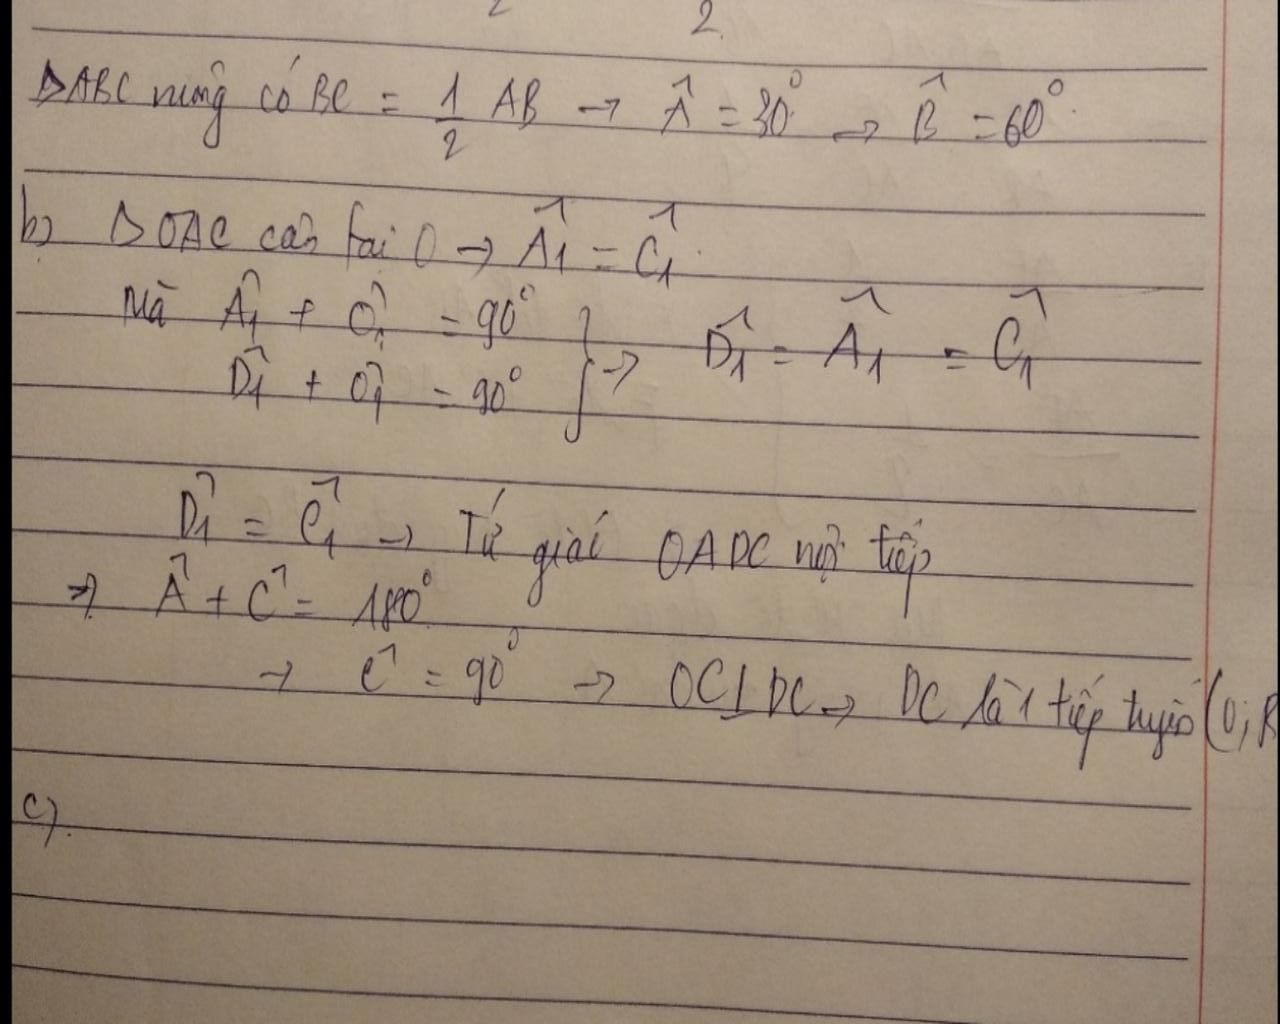 2
ΔABC vuông có BC = 1/2 AB → Â = 30° → B̂ = 60°.
b) Δ OAC cân tại O → Â1 = Ĉ1.
Mà Â1 + Ô1 = 90°
D̂1 + Ô1 = 90° } → D̂1 = Â1 = Ĉ1
D̂1 = Ĉ1 → Tứ giác OADC nội tiếp
⇒ Â + Ĉ = 180°
→ Ĉ = 90° → OC⊥DC → DC là 1 tiếp tuyến (O; R
c).